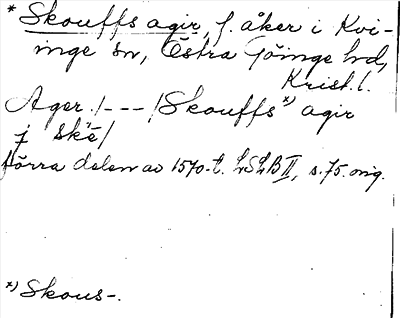 * Skouffs agir, f. åker i Kvi-
inge sn, Östra Göinge hd,
Krist. l.
Ager /---/ Skouffs *) agir
j skē/
Förra delen av 1570-t. LSLB II, s. 75. orig.
*) Skous-.